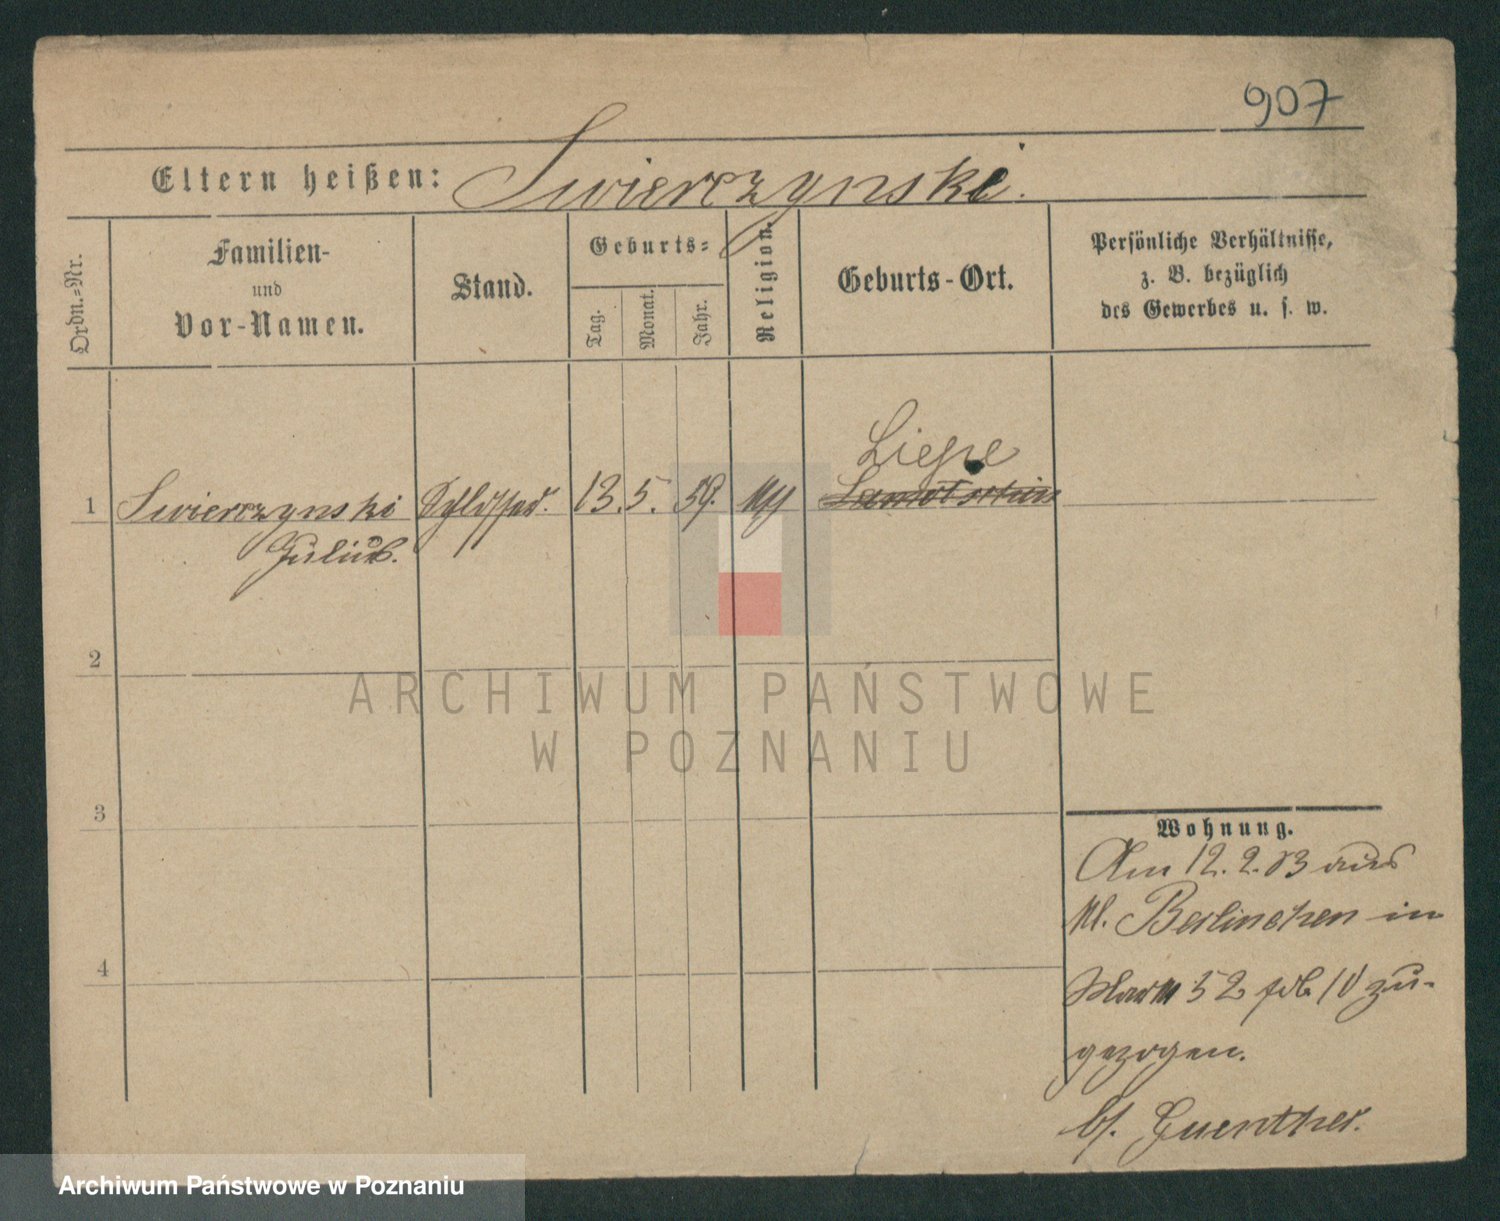 907
Eltern heißen: Swierczynski.
Ordn.-Nr.
Familien-
und
Vor-Namen.
Stand.
Geburts-
Tag.
Monat.
Jahr.
Religion.
Geburts-Ort.
Persönliche Verhältnisse,
z. B. bezüglich
des Gewerbes u. s. w.
Liepe
1 Swierczynski Schlosser. 13. 5. 59.
Julius.
2
3
4
Wohnung.
Am 12. 2. 83 aus
Kl. Berlinchen in
52 10 zu-
gezogen.
b/. Guenther.
ARCHIWUM PAŃSTWOWE
W POZNANIU
Archiwum Państwowe w Poznaniu